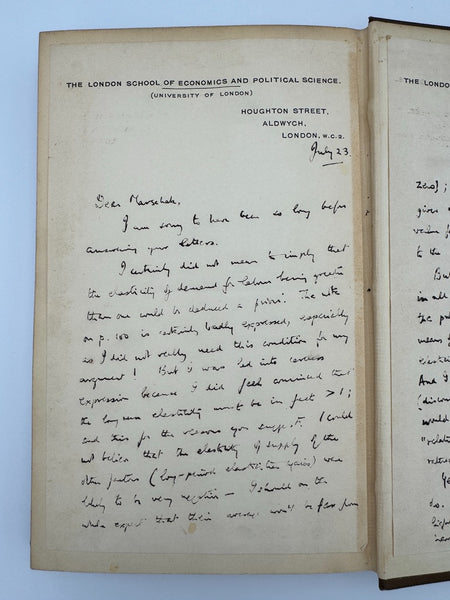 THE LONDON SCHOOL OF ECONOMICS AND POLITICAL SCIENCE.
(UNIVERSITY OF LONDON)
HOUGHTON STREET,
ALDWYCH,
LONDON, W.C.2.
July 23.
Dear Marschak,
I am sorry to have been so long before
answering your letters.
I certainly did not mean to imply that
the elasticity of demand for labour being greater
than one could be deduced a priori. The note
on p. 100 is certainly badly expressed, especially
as I did not really need this condition for my
argument! But I was led into careless
expression because I did feel convinced that
the long run elasticity must be in fact > 1;
and this for the reasons you suggest. I could
not believe that the elasticity of supply of the
other factors (long-period elasticities again) were
likely to be very negative – I should on the
whole expect that their average won't be far from
THE LONDO
zero];
gives
value f
to the
Bu
in all
the pu
means f
elastici
And I
(discou
would
"relati